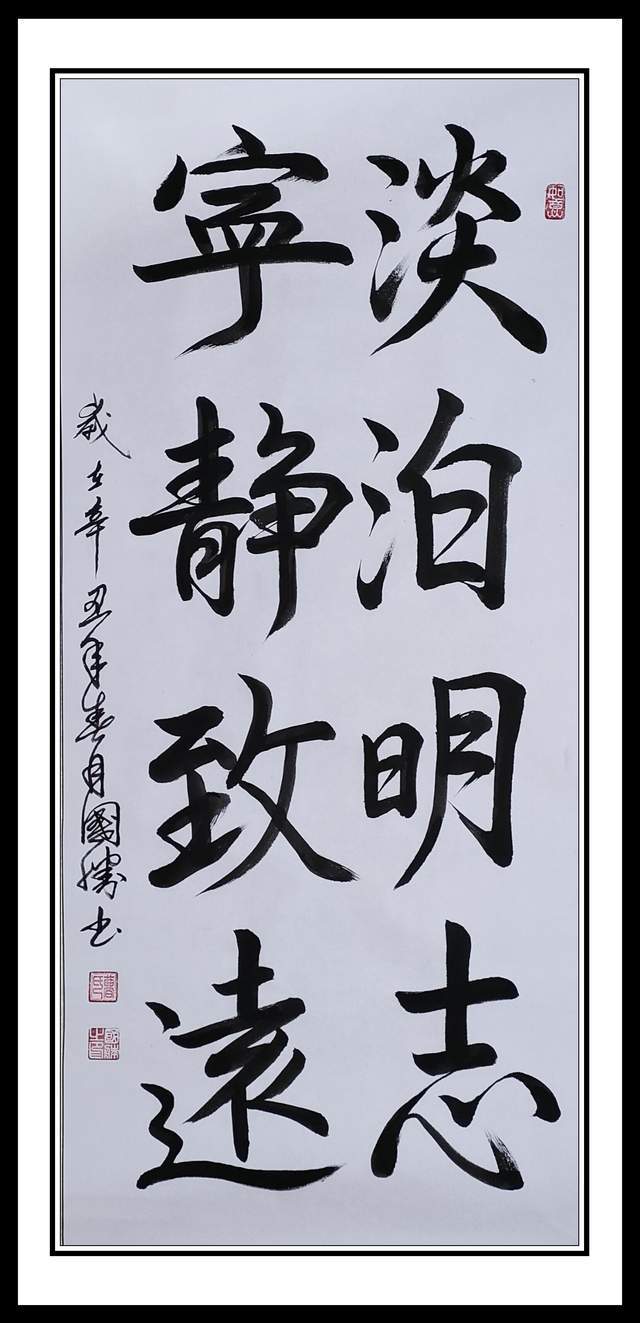 淡泊明志
寧靜致遠
歲在辛丑年春月國勝书
如意